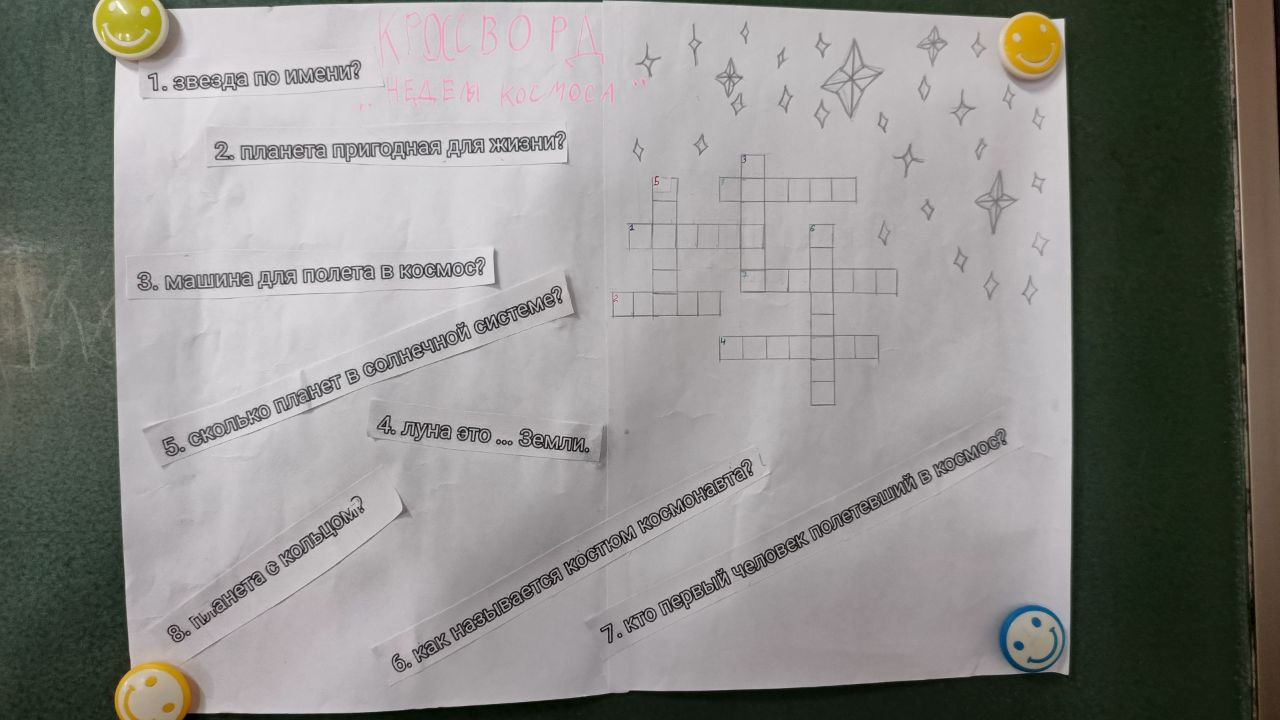 КРОССВОРД
„НЕДЕЛЯ КОСМОСА"
1. звезда по имени?
2. планета пригодная для жизни?
3. машина для полета в космос?
5. сколько планет в солнечной системе?
4. луна это ... Земли.
8. планета с кольцом?
6. как называется костюм космонавта?
7. кто первый человек полетевший в космос?
3
5
1
6
2
4